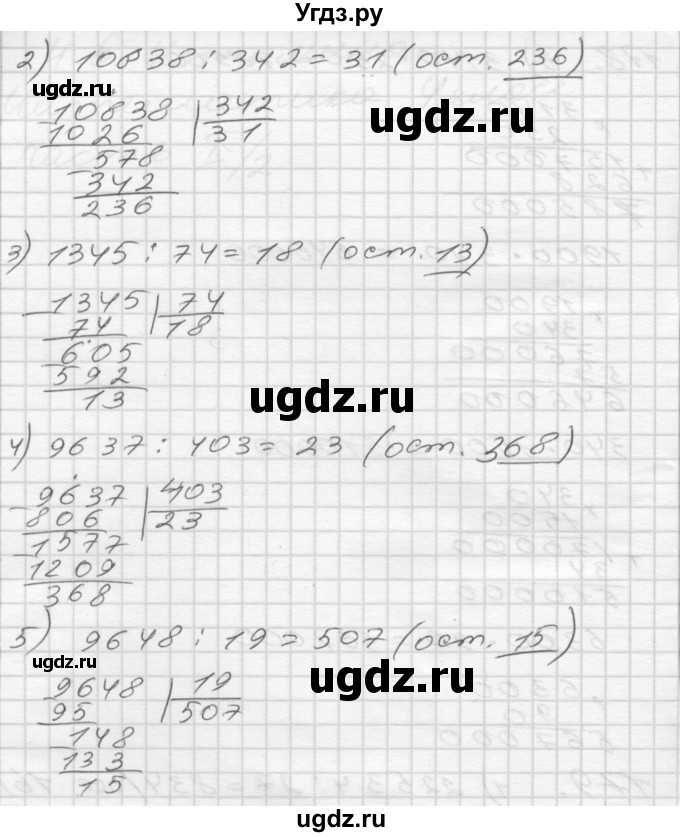 Угдз.ру
2) 10838 : 342 = 31 (ост. 236)
ugdz.ru
10838 | 342
1026 31
ugdz.ru
578
342
236
3) 1345 : 74 = 18 (ост. 13)
1345 | 74
74 18
605
592
ugdz.ru
13
4) 9637 : 403 = 23 (ост. 368)
9637 | 403
806 23
1577
1209
368
5) 9648 : 19 = 507 (ост. 15)
ugdz.ru
ugdz.ru
9648 | 19
95 507
148
133
15
ugdz.ru
ugdz.ru